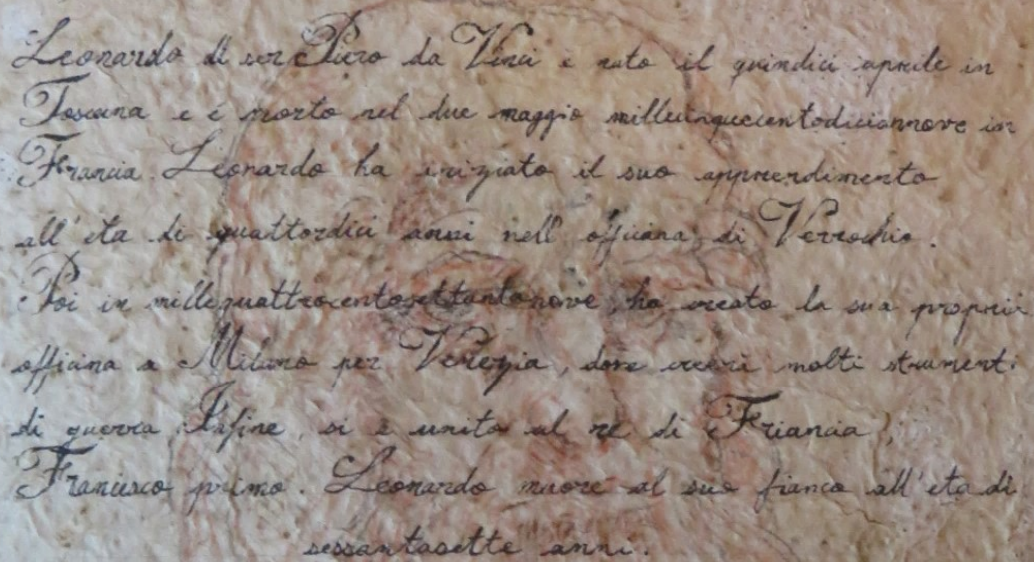 Leonardo di ser Piero da Vinci è nato il quindici aprile in
Toscana e é morto nel due maggio millecinquecentodiciannove in
Francia. Leonardo ha iniziato il suo apprendimento
all'eta di quattordici anni nell'officana di Verrochio.
Poi in millequattrocentosettantanove, ha creato la sua propria
officina a Milano per Venezia, dove creeri molti strumenti
di guerra. Infine, si è unito al re di Friancia,
Francesco primo. Leonardo muore al suo fianco all'eta di
sessantasette anni.